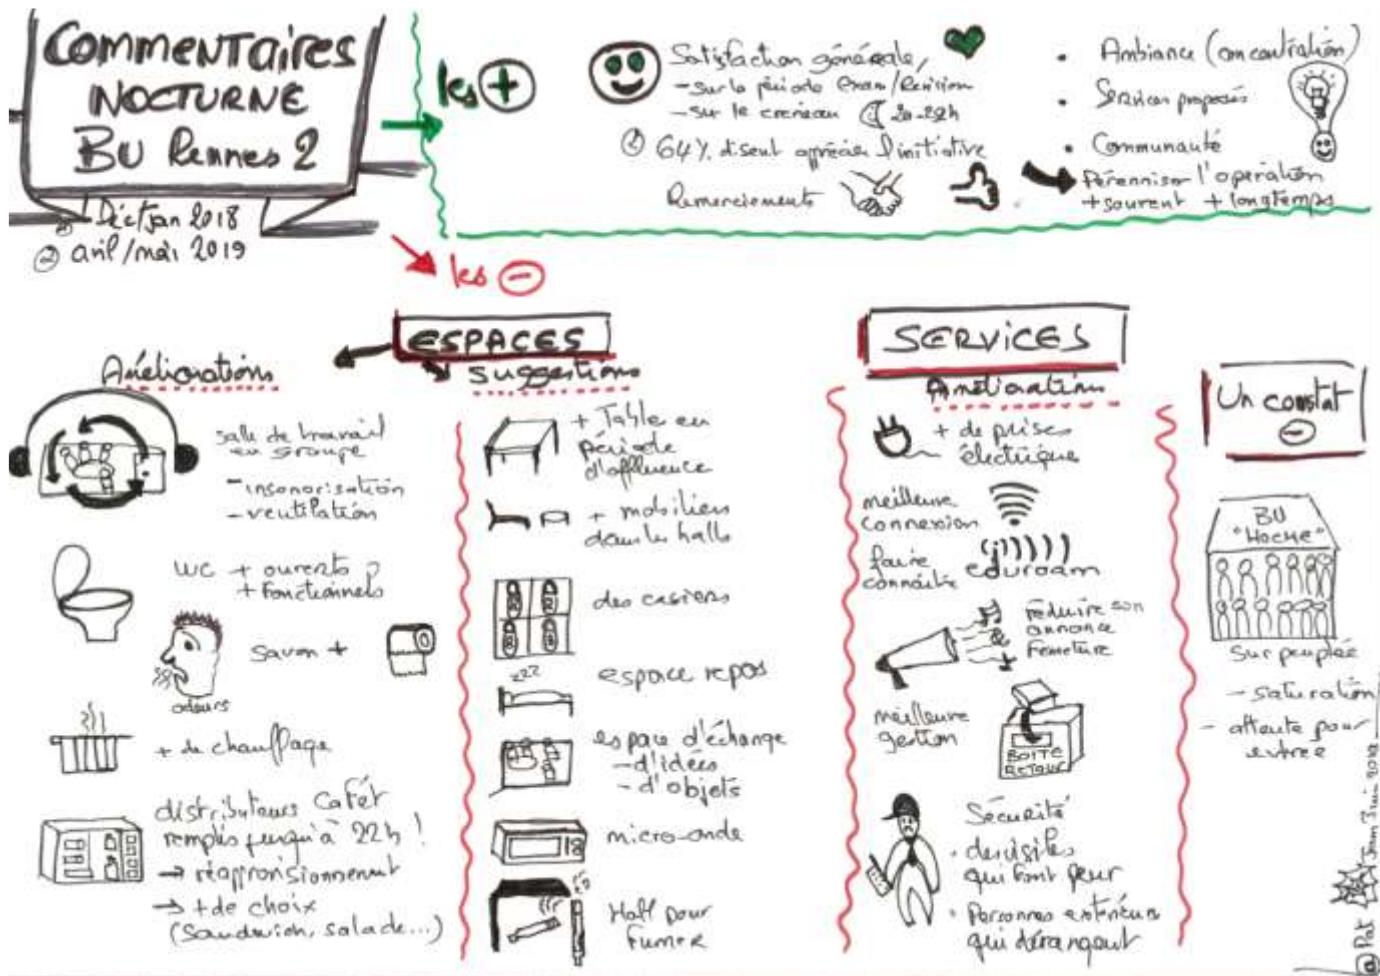 Commentaires
NOCTURNE
BU Rennes 2
① Déc/jan 2018
② avril/mai 2019
les +
Satisfaction générale,
- sur la période exam/Révision
- sur le créneau 20-22h
② 64% disent apprécier l'initiative
Remerciements
• Ambiance (concentration)
• Services proposés
• Communauté
Pérenniser l'opération
+ souvent + longtemps
les -
ESPACES
Améliorations
salle de travail
en groupe
- insonorisation
- ventilation
WC + ouverts
+ fonctionnels
savon +
odeurs
+ de chauffage
distributeurs Cafét
remplis jusqu'à 22h !
→ réapprovisionnement
→ + de choix
(sandwich, salade...)
Suggestions
+ Table en
période
d'affluence
+ mobiliers
dans les halls
des casiers
zzz
espace repos
espace d'échange
- d'idées
- d'objets
micro-onde
Hall pour
fumer
SERVICES
Améliorations
+ de prises
électrique
meilleure
connexion
faire
connaître
eduroam
réduire son
annonce
fermeture
meilleure
gestion
BOITE
RETOUR
Sécurité
•
qui font peur
• Personnes extérieures
qui dérangent
Un constat
-
BU
"HOCHE"
Sur peuplée
- saturation
- attente pour
entrée
@Pat
Juin 2019